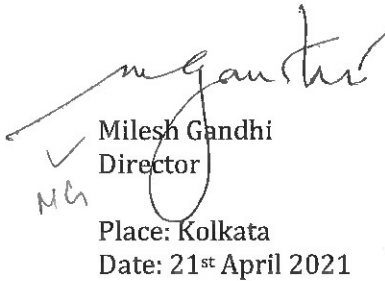 mgandhi
Milesh Gandhi
Director
MG
Place: Kolkata
Date: 21st April 2021